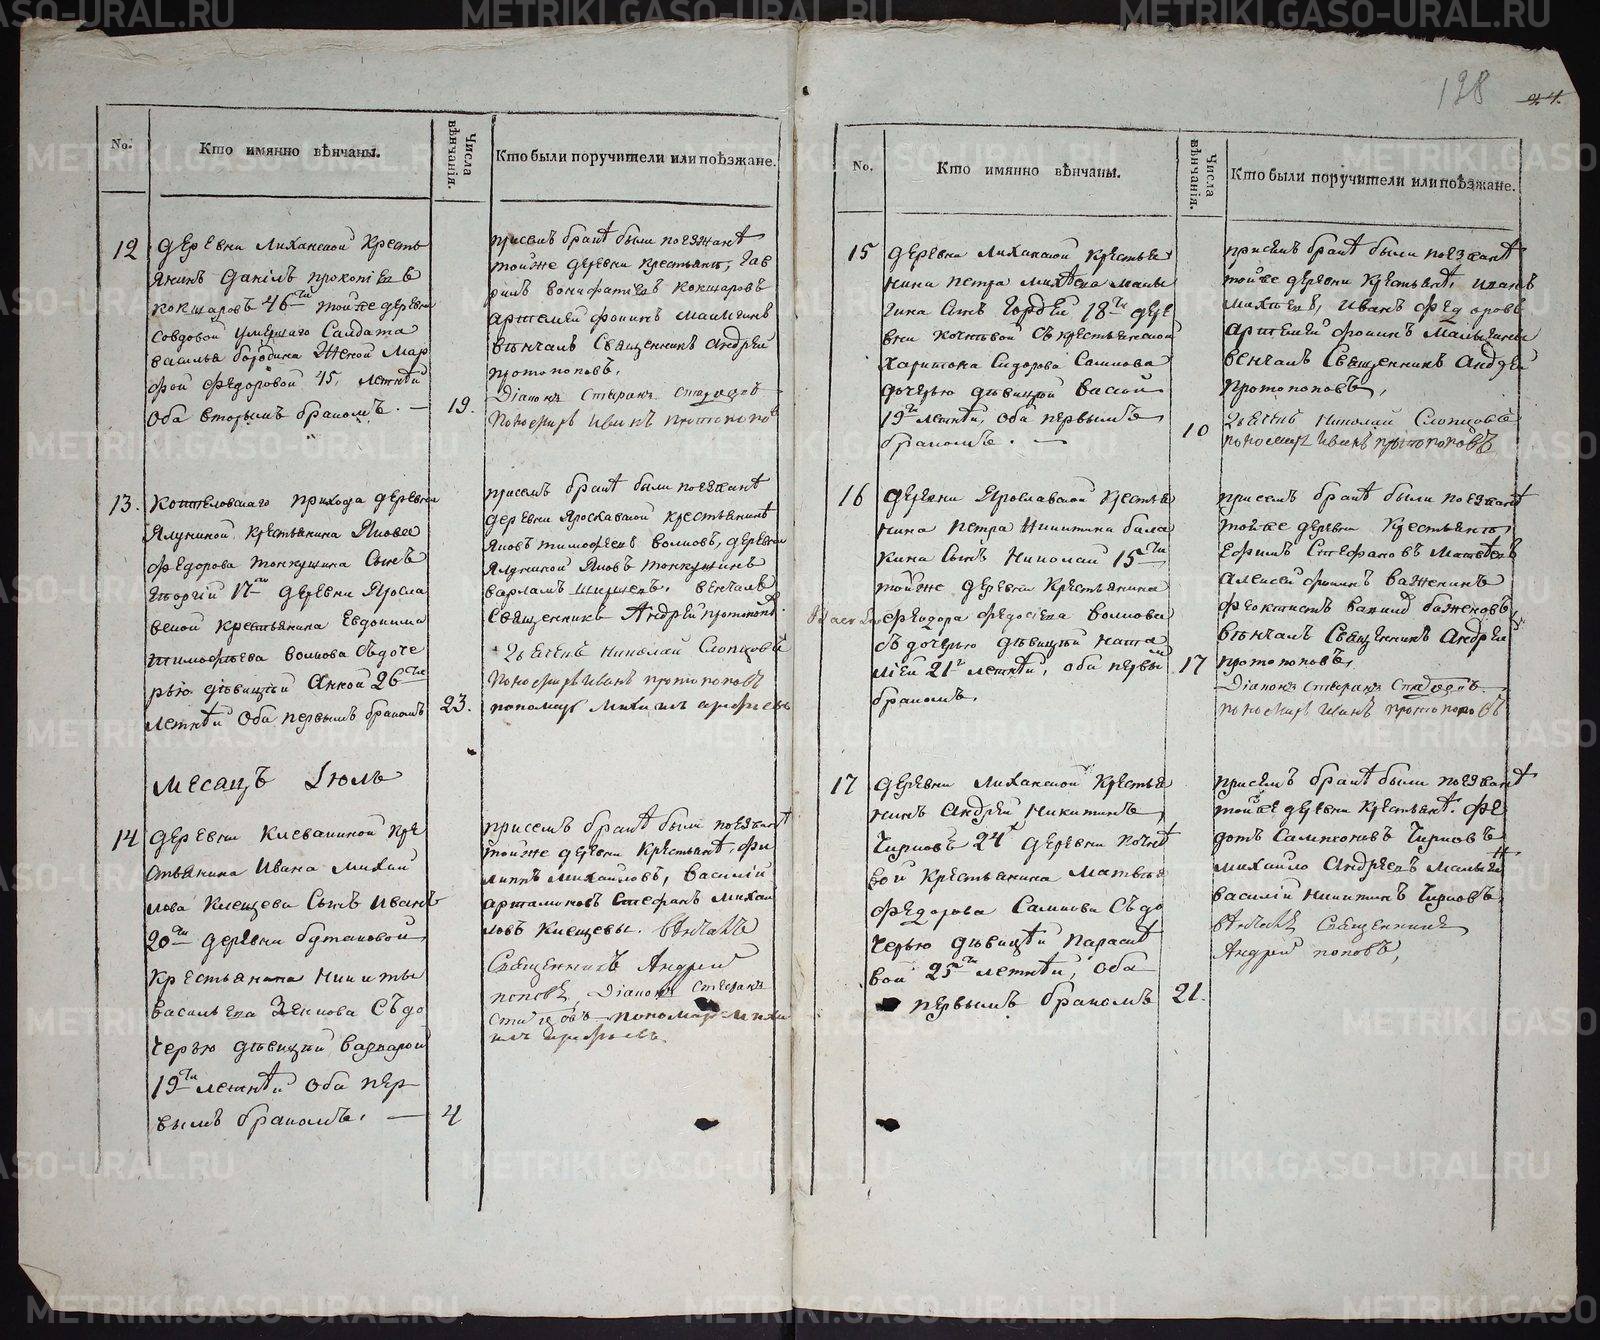 128
24.
No.
Кто имянно вѣнчаны.
Числа вѣнчанія.
Кто были поручители или поѣзжане.
12
деревни Лиханской кресть
янинъ Данiилъ прокопiевъ
кокшаровъ 46ти тойже деревни
совдовой умершаго Салдата
василья бородина Женой Мар
фой федоровой 45, летнѣй
оба вторымъ бракомъ. —
19.
присемъ бракѣ были поезжанѣ
тойже деревни крестьянѣ, гав
рилъ вонифатiевъ кокшаровъ
артемей фокинъ
вѣнчалъ Священникъ Андрей
протопоповъ,
Дiаконъ Стефанъ
Пономарь Иванъ протопоповъ
13.
прихода деревни
Ялуниной крестьянина Якова
федорова тонкушина Сынъ
Георгiй 17ти деревни Яросла
вской крестьянина Евдокима
тимофѣева волкова Съдоче
рью дѣвицѣй Анной 26ти
летнѣй оба первымъ бракомъ
23.
присемъ бракѣ были поезжанѣ
деревни Ярославской крестьянинѣ
Яковъ тимофеевъ волковъ, деревни
Ялуниной Яковъ тонкушинъ
варламъ венчалъ
Священникъ Андрей протопоповъ.
Дьячекъ Николай Слопцовъ
Пономарь Иванъ протопоповъ
пономарь Михаилъ
месацъ Iюль
14
деревни Клевакиной кре
стьянина Ивана Михаи
лова Клещева Сынъ Иванъ
20ти деревни бутаковой,
крестьянина никиты
васильева Зенкова Съдо
черью дѣвицѣй варварой
19ти летнѣй оба пер
вымъ бракомъ. —
4
присемъ бракѣ были поезжанѣ
тойже деревни крестьянѣ, фи
липпъ михайловъ, василiй
артамоновъ Стефанъ михаи
ловъ клещевы. вѣнчалъ
Священникъ Андрей
поповъ, Дiаконъ Стефанъ
пономарь Миха
илъ
No.
Кто имянно вѣнчаны.
Числа вѣнчанія.
Кто были поручители или поѣзжане.
15
деревни Лиханской крестья
нина петра михѣева малы
гина Сынъ Гордей 18ти дере
вни кочневой Съ крестьянской
харитона Сидорова Салкова
дочерью дѣвицѣй васой
19ти летнѣй, оба первымъ
бракомъ. —
10
присемъ бракѣ были поезжанѣ
тойже деревни крестьянѣ, иванъ
михѣевъ, Иванъ федоровъ
артемей фокинъ Малыгины
венчалъ Священникъ Андрей
протопоповъ,
Дьячекъ Николай Слопцовъ
пономарь Иванъ протопоповъ
16
деревни Ярославской крестья
нина петра Никитина бала
кина Сынъ Николай 15ти
тойже деревни крестьянина
феодора федосеева волкова
съдочерью дѣвицѣй ната
лiей 21й летнѣй, оба первы
бракомъ.
17
присемъ бракѣ были поезжанѣ
тойже деревни крестьянѣ
Ефимъ Стефановъ матвѣевъ
алексей фокинъ важенинъ
феоктистъ важеновъ,
вѣнчалъ Священникъ Андрей
протопоповъ,
Дiаконъ Стефанъ
пономарь Иванъ протопоповъ
17
деревни Лиханской крестья
нинъ Андрей Никитинъ,
Чирковъ 24х деревни кочнѣ
вой крестьянина матвея
федорова Салкова Съдо
черью дѣвицѣй параске
вой 25ти летнѣй, оба
первымъ бракомъ
21.
присемъ бракѣ были поезжанѣ
тойже деревни крестьянѣ. фе
дотъ Чирковъ
михайло Андреевъ малыги
василiй никитинъ Чирковъ,
вѣнчалъ Священникъ
Андрей поповъ,
METRIKI.GASO-URAL.RU